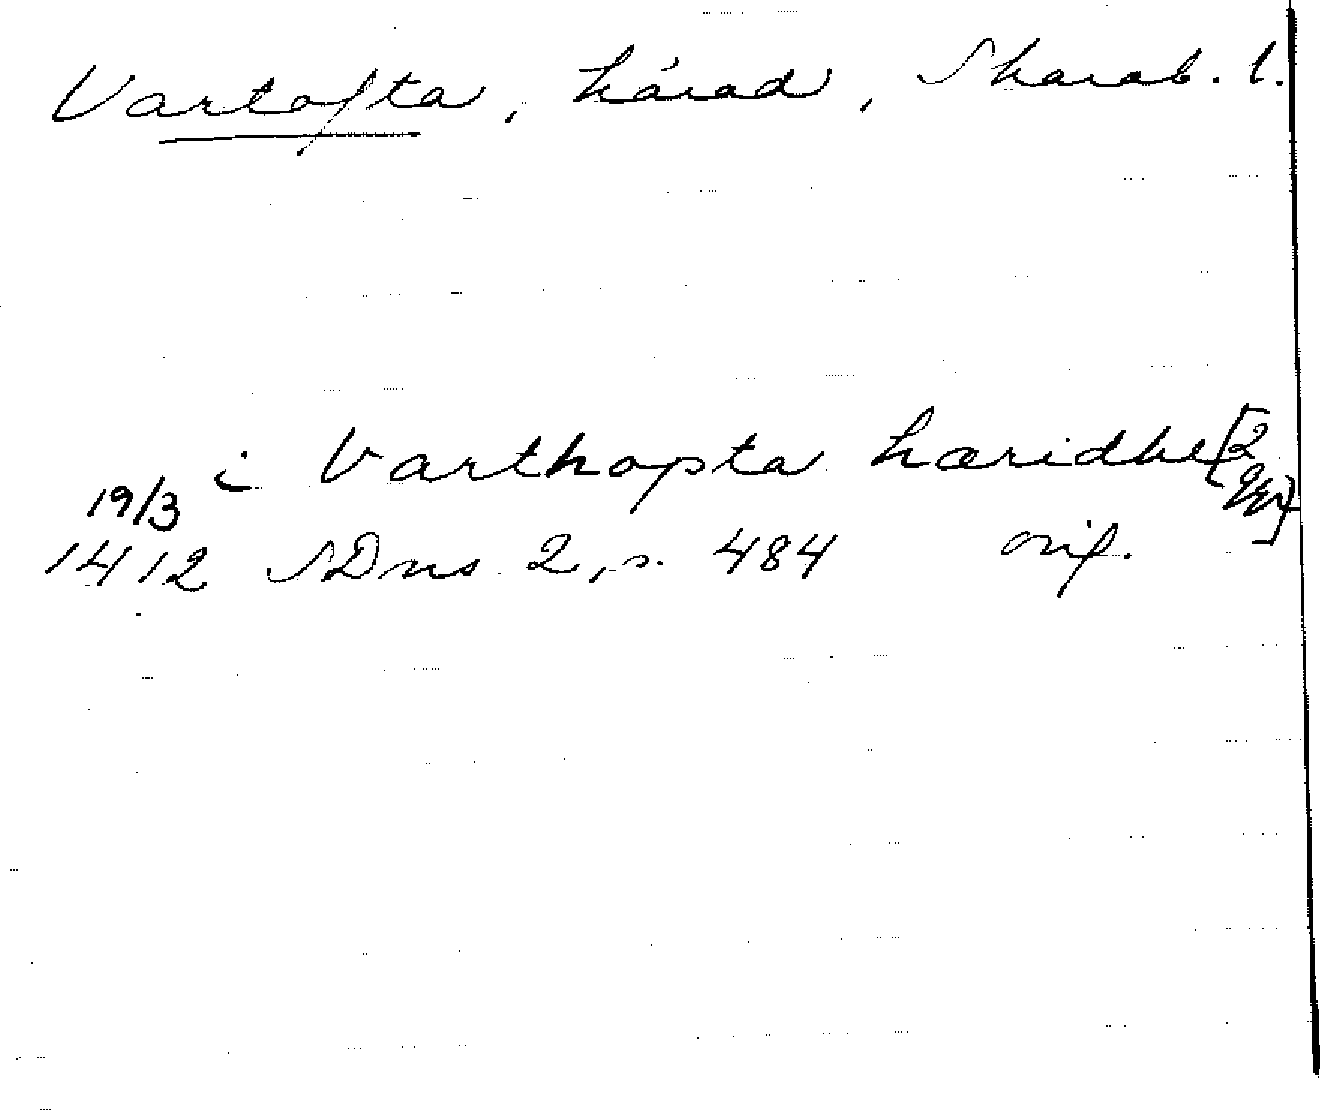 Vartofta, härad, Skarab. l.
i Varthopta hæridhe [2 ggr]
19/3
1412 SDns 2, s. 484 orig.